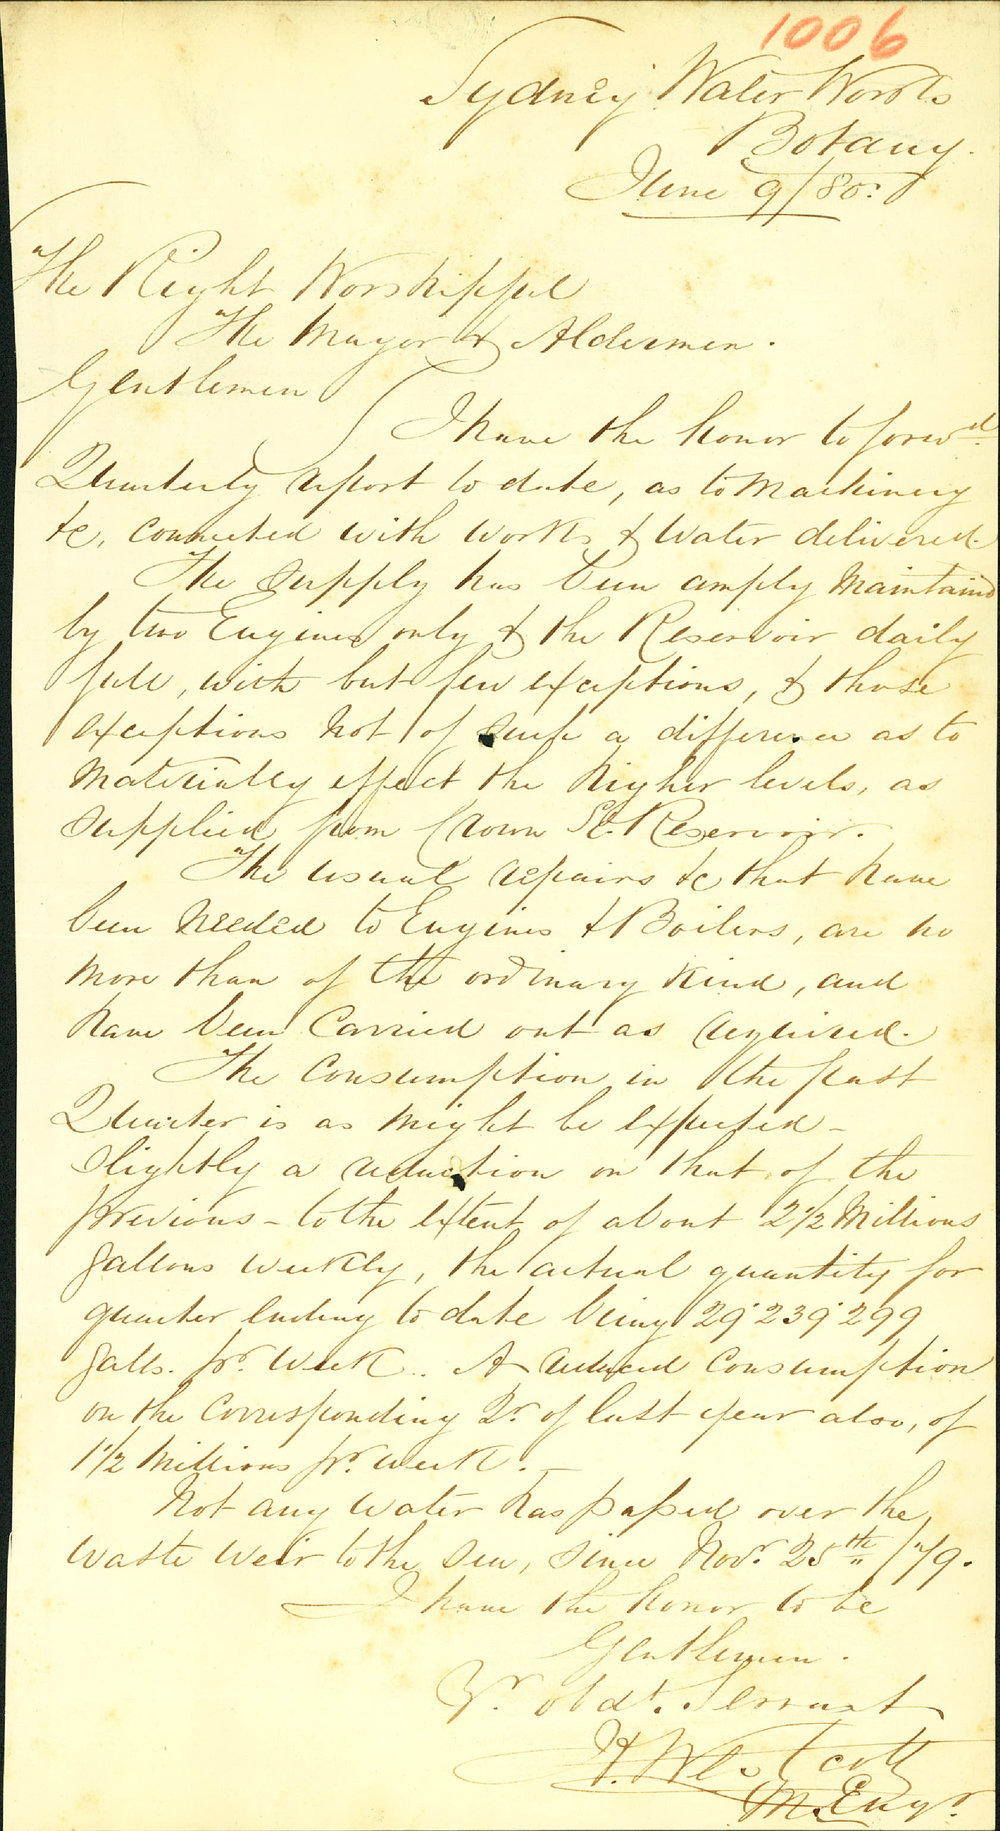 1006
Sydney Water Works
Botany.
June 9/80.
The Right Worshipful
The Mayor & Aldermen.
Gentlemen
I have the honor to forwd
Quarterly report to date, as to Machinery
&c, connected with works & Water delivered.
The Supply has been amply Maintaind
by two Engines only & the Reservoir daily
full, with but few exceptions, & those
exceptions not of such a difference as to
Materially effect the higher levels, as
Supplied from Crown St. Reservoir.
The usual repairs &c that have
been needed to Engines & Boilers, are no
more than of the ordinary kind, and
have been Carried out as required.
The Consumption in the past
Quarter is as might be expected -
Slightly a reduction on that of the
previous - to the extent of about 2 1/2 Millions
gallons weekly, the actual quantity for
quarter ending to date being 29.239.299
galls. pr. Week. A reduced Consumption
on the Corresponding Qr. of last year also, of
1 1/2 Millions pr. week. -
Not any Water has passed over the
Waste Weir to the Sea, since Novr. 25th /79.
I have the honor to be
Gentlemen.
Yr obdt. Servant
H. Westcott
M. Engr.